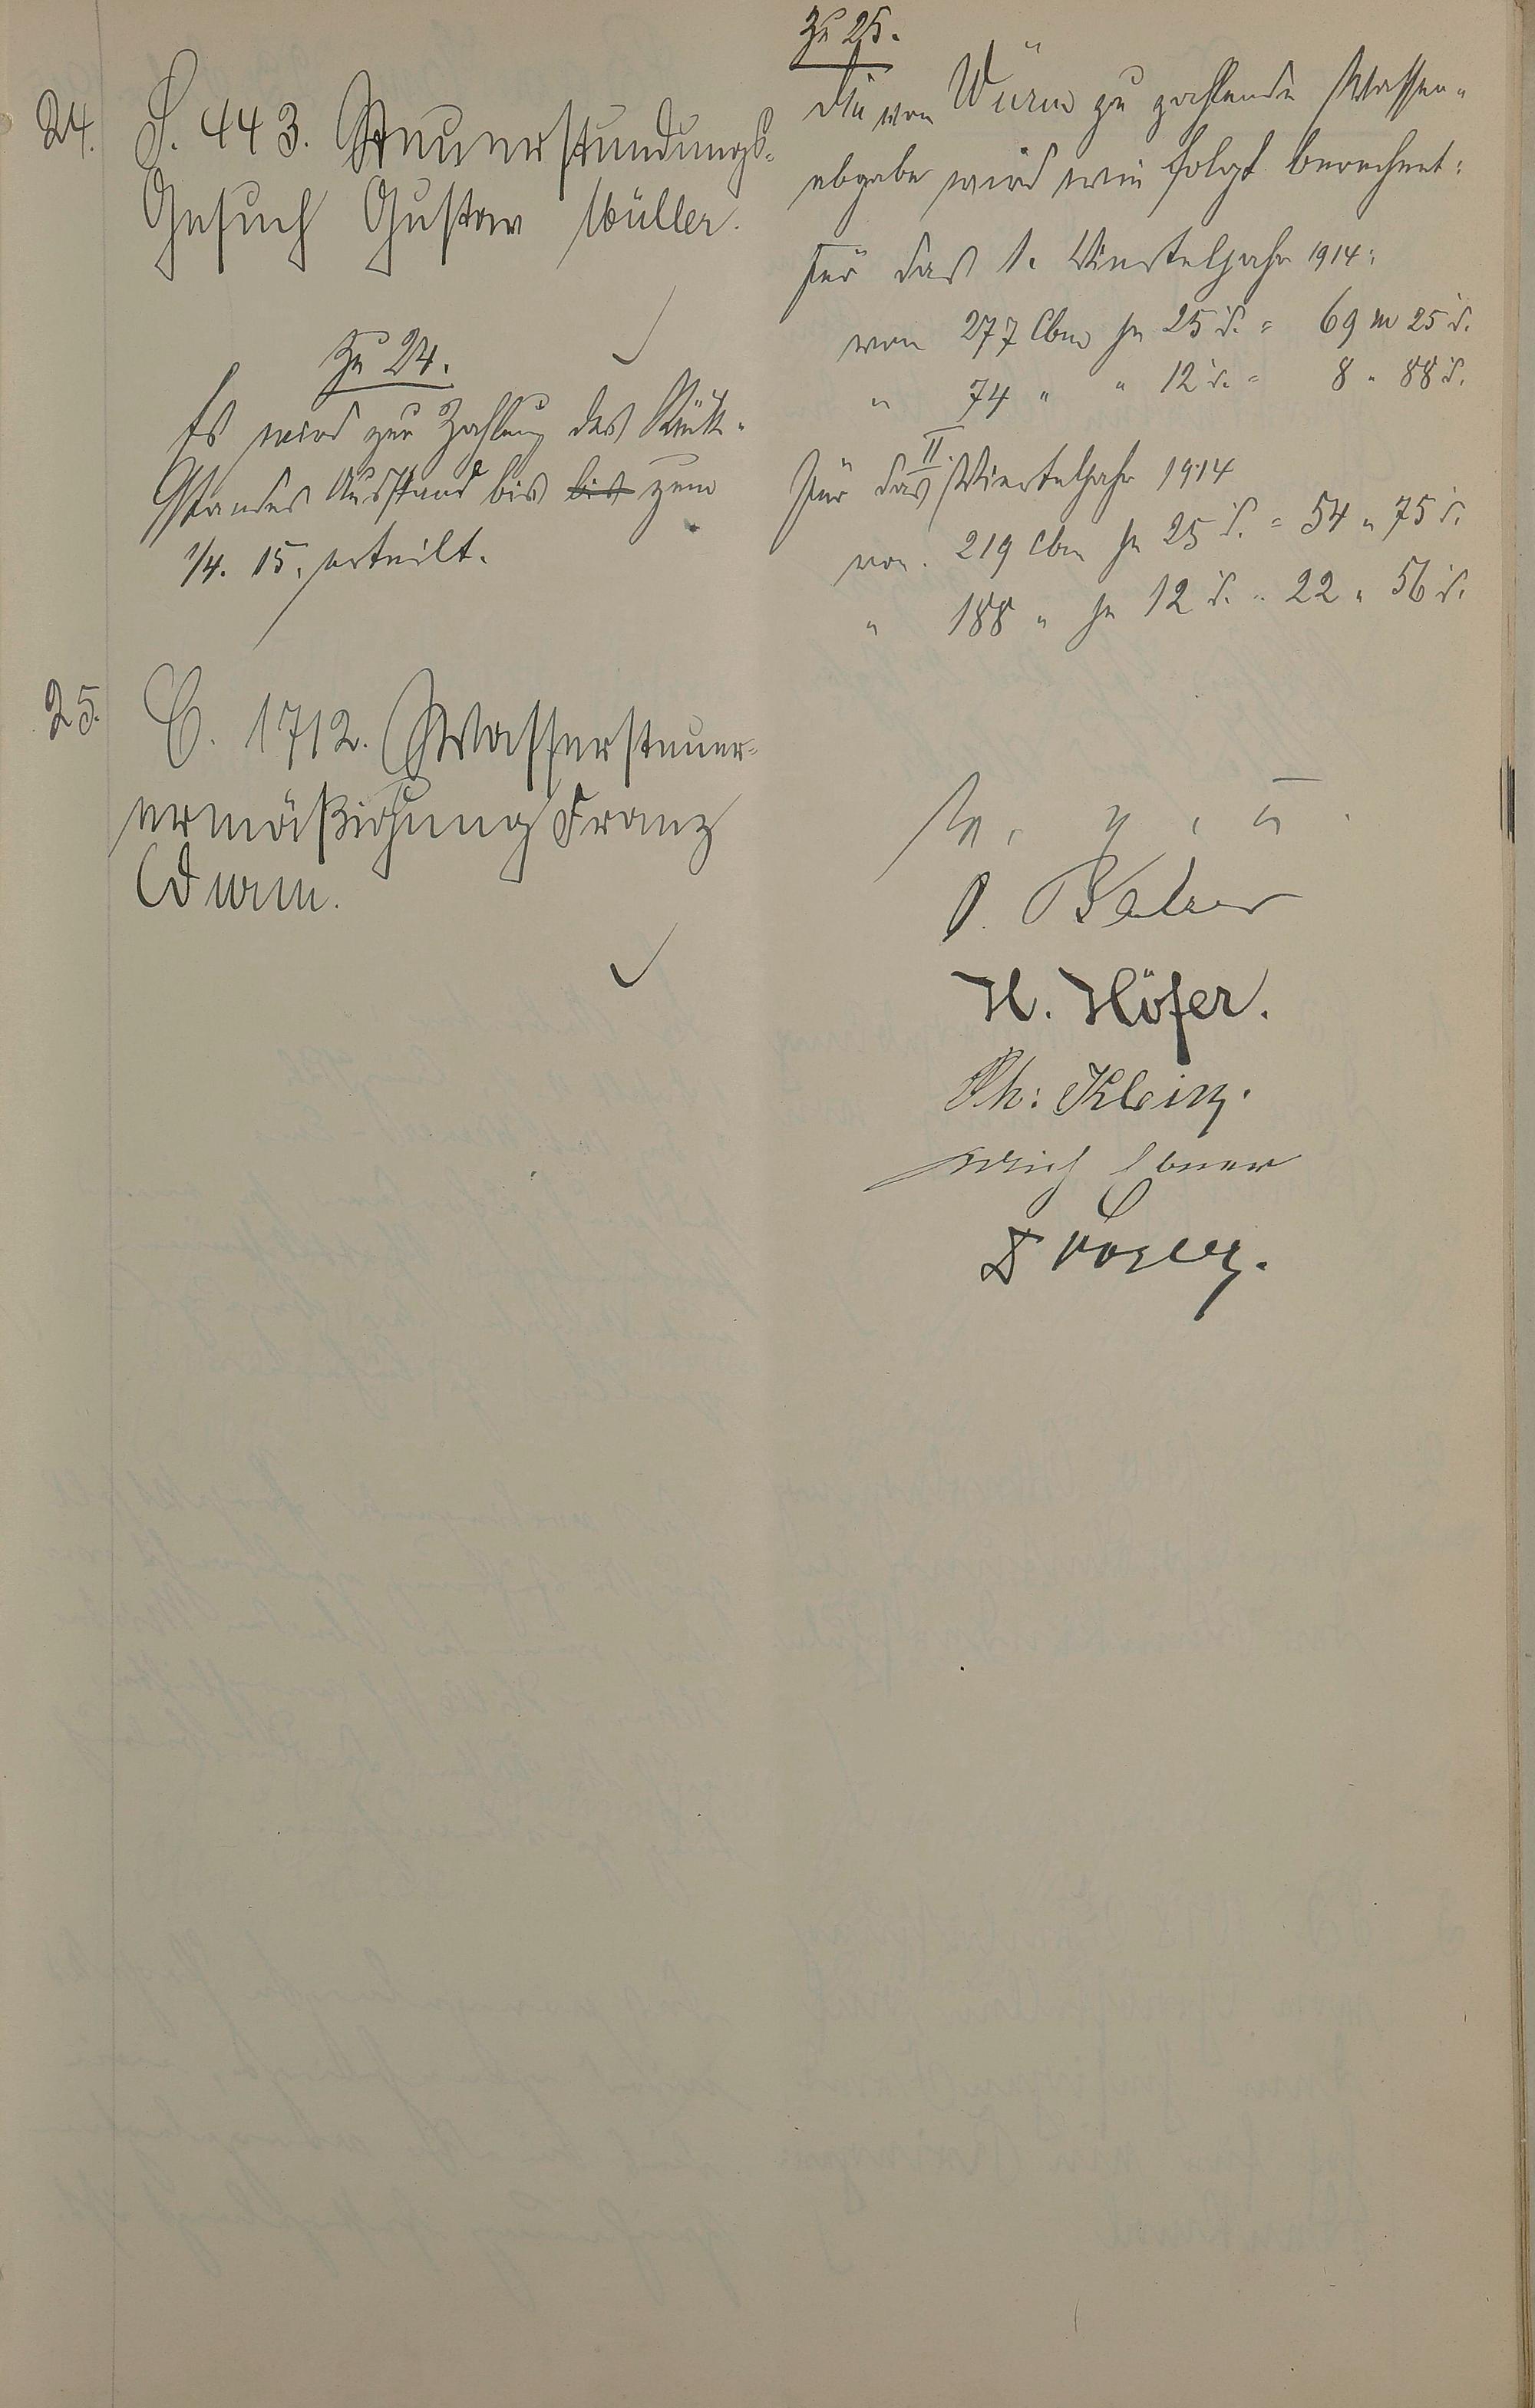 24. S. 443. Steuerstundungs-
Gesuch Gustav Müller.
Zu 24.
Es wird zur Zahlung des Rück-
standes Ausstand bis bis zum
1/4. 15. erteilt.
25. C. 1712. Wassersteuer-
ermäßigung Franz
Wurm.
Zu 25.
Die von Würm zu zahlende Wasser-
abgabe wird wie folgt berechnet:
Für das 1. Vierteljahr 1914:
von 277 Cbm je 25 d. = 69 M 25 d.
" 74 " " 12 d. = 8 " 88 d.
Für das II. Vierteljahr 1914
von 219 Cbm je 25 d. = 54 " 75 d.
" 188 " je 12 d. " 22 " 56 d.
v. g. u.
H. Höfer.
Ph: Klein.